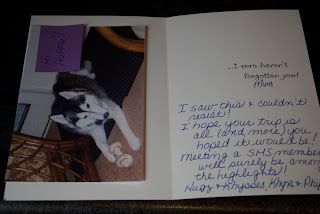 Hi
Huffle!
...I sure haven't
forgotten you!
Mum
I saw this & couldn't
resist!
I hope your trip is
all (and more) you
hoped it would be!
Meeting a SHS member
will surely be among
the highlights!!
Hugs & Khysses,